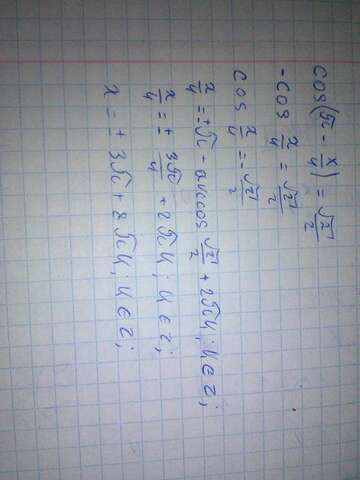 cos(π - x/4) = √2/2
-cos x/4 = √2/2
cos x/4 = -√2/2
x/4 = ± π - arccos √2/2 + 2πk; k ∈ z;
x/4 = ± 3π/4 + 2πk; k ∈ z;
x = ± 3π + 8πk; k ∈ z;